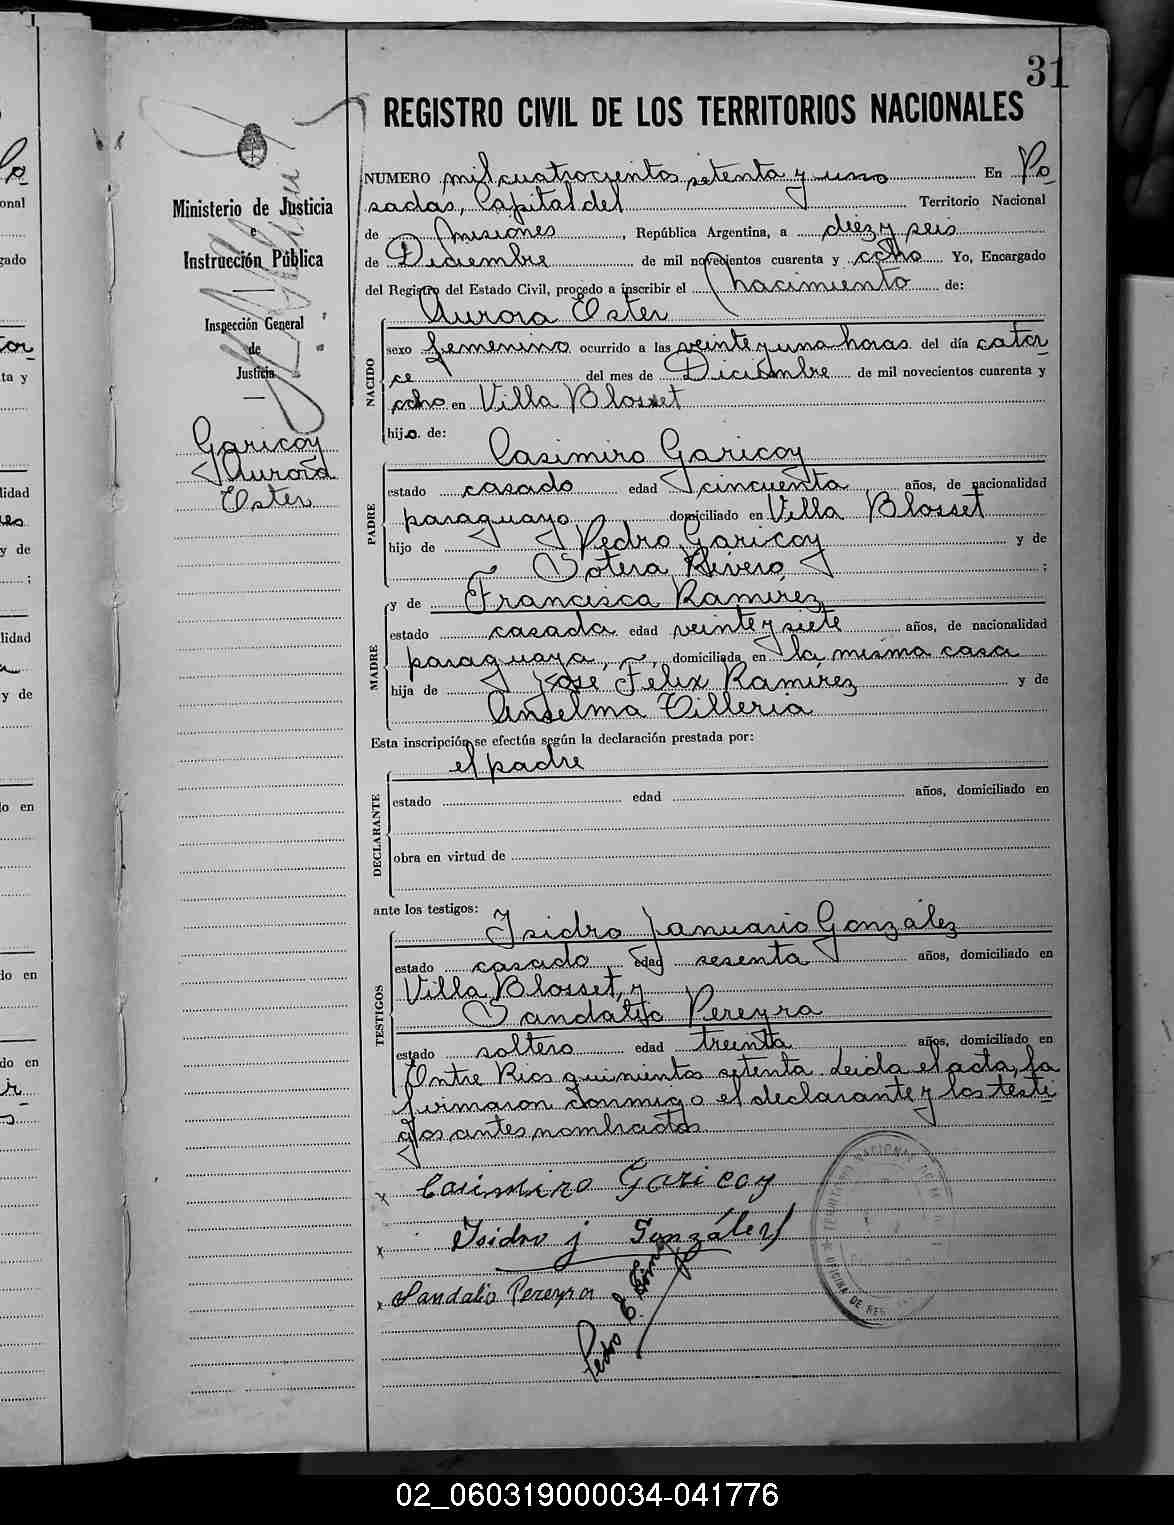 31
REGISTRO CIVIL DE LOS TERRITORIOS NACIONALES
Ministerio de Justicia
e
Instrucción Pública
Inspección General
de
Justicia
Garicoy
Aurora
Ester
NUMERO mil cuatrocientos setenta y uno En Po
sadas, Capital del Territorio Nacional
de Misiones, República Argentina, a diez y seis
de Diciembre de mil novecientos cuarenta y ocho Yo, Encargado
del Registro del Estado Civil, procedo a inscribir el nacimiento de:
Aurora Ester
NACIDO
sexo femenino ocurrido a las veinte y una horas del día cator
ce del mes de Diciembre de mil novecientos cuarenta y
ocho en Villa Blosset
hijo de:
Casimiro Garicoy
PADRE
estado casado edad cincuenta años, de nacionalidad
paraguayo domiciliado en Villa Blosset
hijo de Pedro Garicoy y de
Sotera Rivero ;
y de Francisca Ramírez
MADRE
estado casada edad veinte y siete años, de nacionalidad
paraguaya, domiciliada en la misma casa
hija de José Félix Ramírez y de
Anselma Tilleria
Esta inscripción se efectúa según la declaración prestada por:
el padre
DECLARANTE
estado edad años, domiciliado en
obra en virtud de
ante los testigos:
Isidro Januario González
TESTIGOS
estado casado edad sesenta años, domiciliado en
Villa Blosset, y
Sandalio Pereyra
estado soltero edad treinta años, domiciliado en
Entre Rios quinientos setenta. Leida el acta, la
firmaron conmigo el declarante y los testi
gos antes nombrados.
x Casimiro Garicoy
x Isidro j González
x Sandalio Pereyra
Pedro E.
02_060319000034-041776